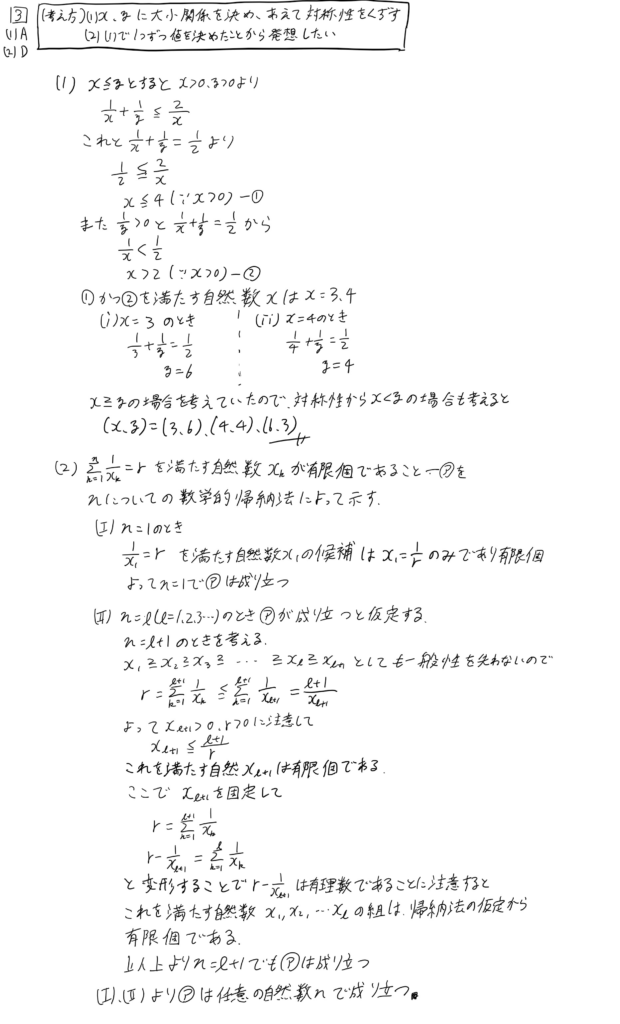 3 (考え方)(1)x、yに大小関係を決め、あえて対称性をくずす
(1)A (2)(1)で1つずつ値を決めたことから発想したい
(2)D
(1) x≦yとするとx>0,y>0より
1/x+1/y≦2/x
これと1/x+1/y=1/2より
1/2≦2/x
x≦4(∵x>0)―①
また1/y>0と1/x+1/y=1/2から
1/x<1/2
x>2(∵x>0)―②
①かつ②を満たす自然数xはx=3,4
(i)x=3のとき (ii)x=4のとき
1/3+1/y=1/2 1/4+1/y=1/2
y=6 y=4
x≧yの場合を考えていたので、対称性からx<yの場合も考えると
(x,y)=(3,6),(4,4),(6,3)
(2) Σ[k=1→n]1/x_k=rを満たす自然数x_kが有限個であること…㋐を
nについての数学的帰納法によって示す.
(I) n=1のとき
1/x₁=r を満たす自然数x₁の候補はx₁=1/rのみであり有限個
よってn=1で㋐は成り立つ
(II) n=l(l=1,2,3…)のとき㋐が成り立つと仮定する.
n=l+1のときを考える.
x₁≧x₂≧x₃≧…≧x_l≧x_{l+1}としても一般性を失わないので
r=Σ[k=1→l+1]1/x_k≦Σ[k=1→l+1]1/x_{l+1}=(l+1)/x_{l+1}
よってx_{l+1}>0,r>0に注意して
x_{l+1}≦(l+1)/r
これを満たす自然x_{l+1}は有限個である.
ここでx_{l+1}を固定して
r=Σ[k=1→l+1]1/x_k
r-1/x_{l+1}=Σ[k=1→l]1/x_k
と変形することでr-1/x_{l+1}は有理数であることに注意すると
これを満たす自然数x₁,x₂,…x_lの組は、帰納法の仮定から
有限個である.
以上よりn=l+1でも㋐は成り立つ
(I),(II)より㋐は任意の自然数nで成り立つ.